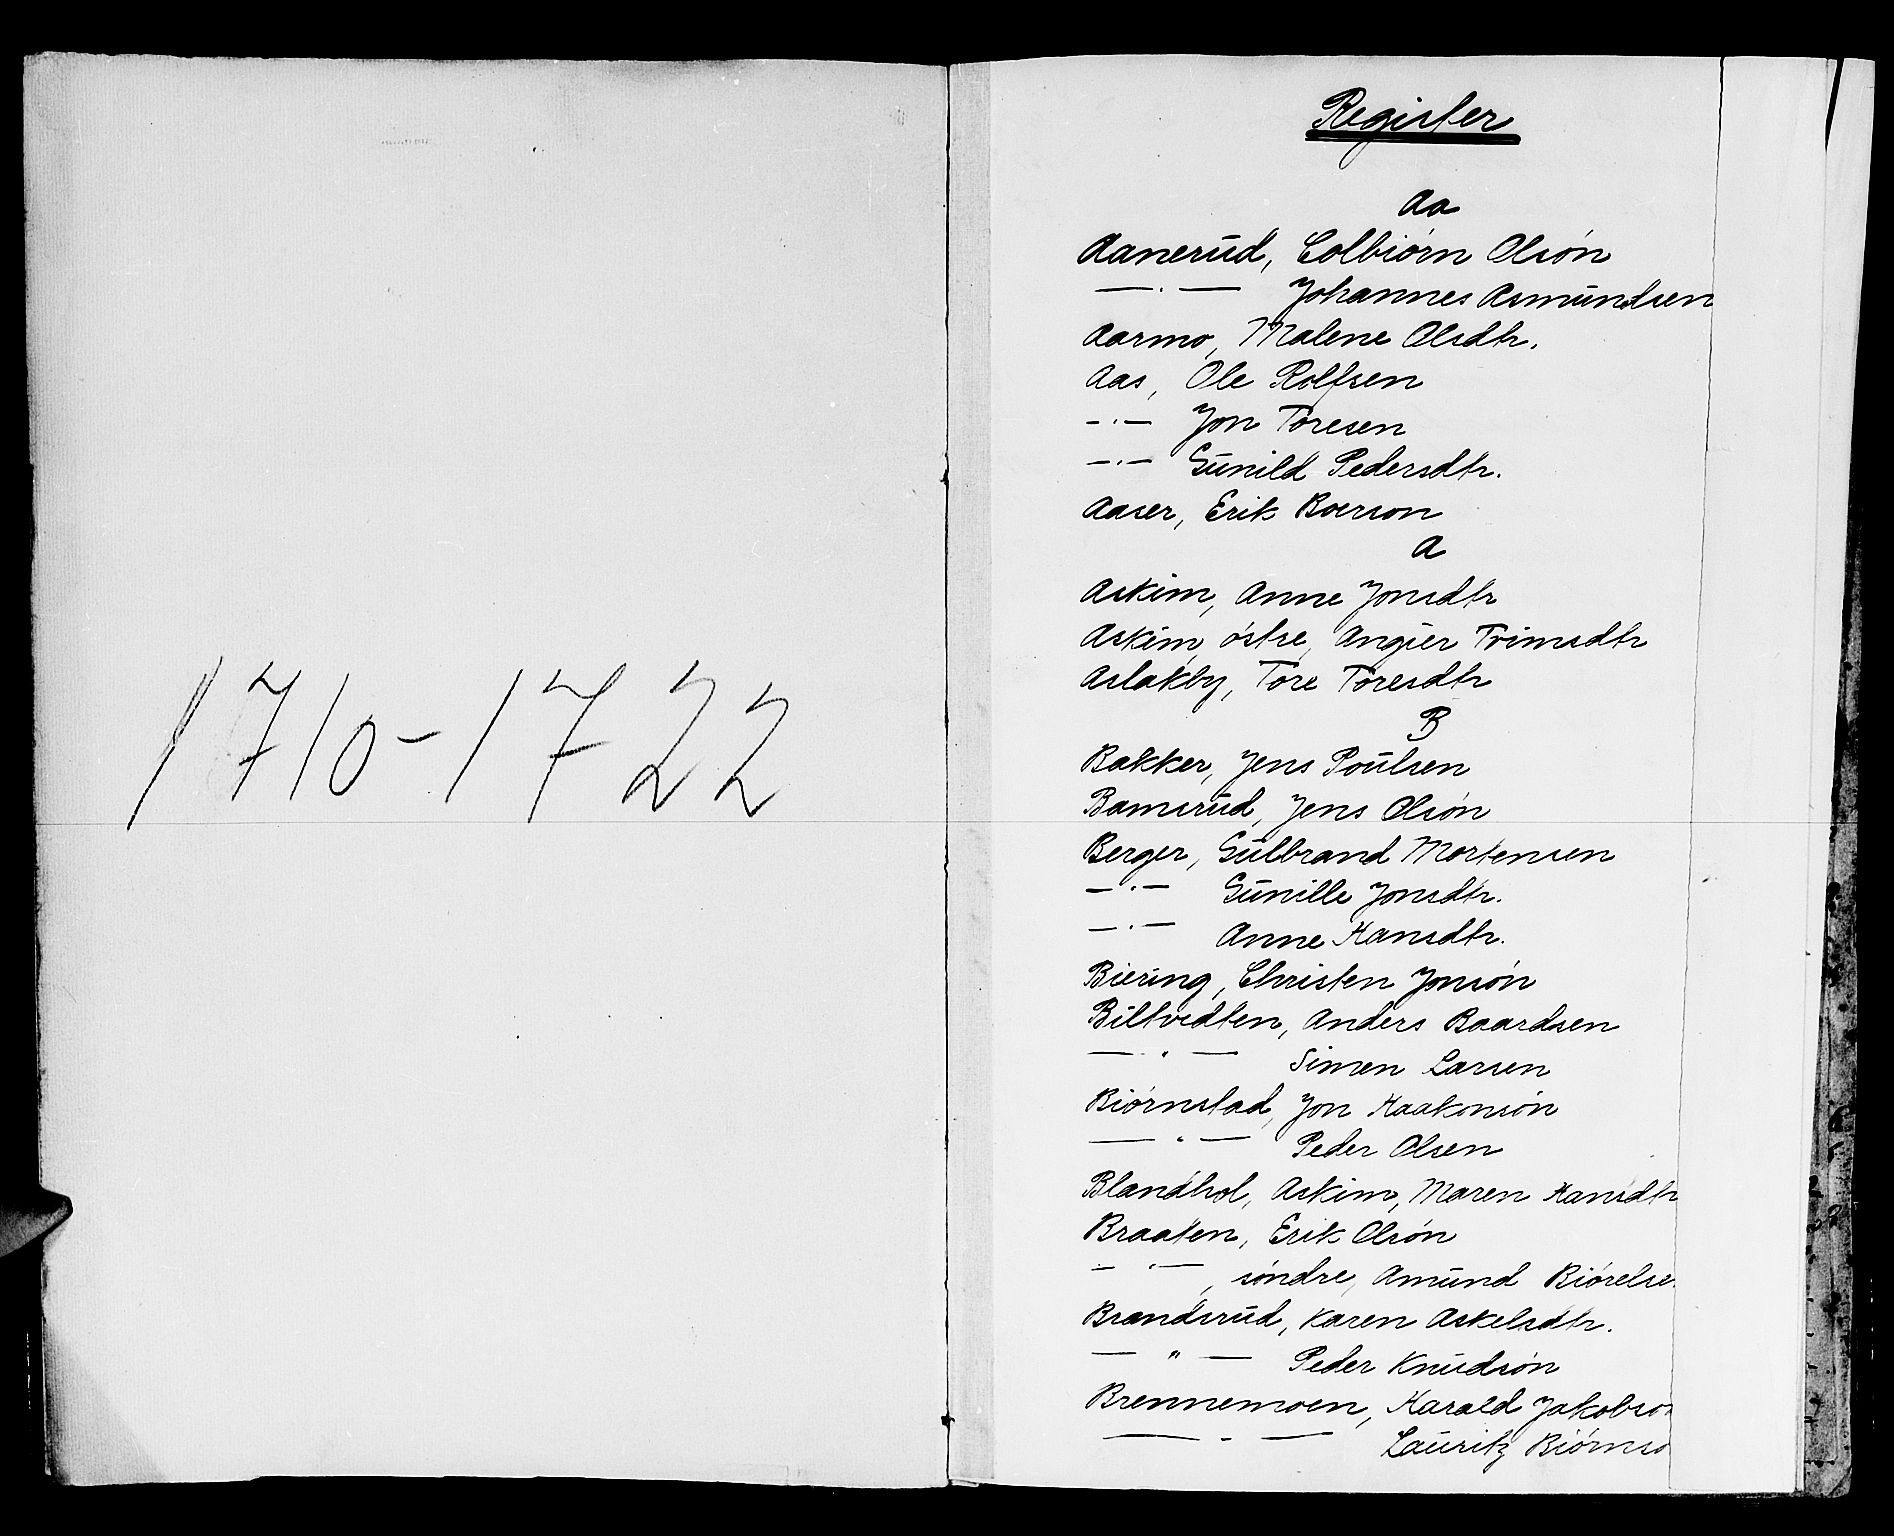 1710-1722
Register
Aa
Aanerud, Colbiørn Olsøn
—"— Johannes Asmundsen
Aarmo, Malene Olsdtr.
Aas, Ole Rolfsen
—"— Jon Toresen
—"— Gunild Pedersdtr.
Aaser, Erik Boerson
A
Askim, Anne Jonsdtr
Askim, østre, Angier Trimsdtr
Aslakby, Tore Toresdtr
B
Bakker, Jens Poulsen
Bamsrud, Jens Olsøn
Berger, Gulbrand Mortensen
—"— Gunille Jonsdtr.
—"— Anne Hansdtr.
Biering, Christen Jonsøn
Biltvedten, Anders Baardsen
—"— Simen Larsen
Biørnstad, Jon Haakonsøn
—"— Peder Olsen
Blandhol, Askim, Maren Hansdtr
Braaten, Erik Olsøn
—"—, søndre, Amund Biørelse
Brandsrud, Karen Askelsdtr.
—"— Peder Knudsøn
Brennemoen, Harald Jakobson
—"— Lauritz Biørnso